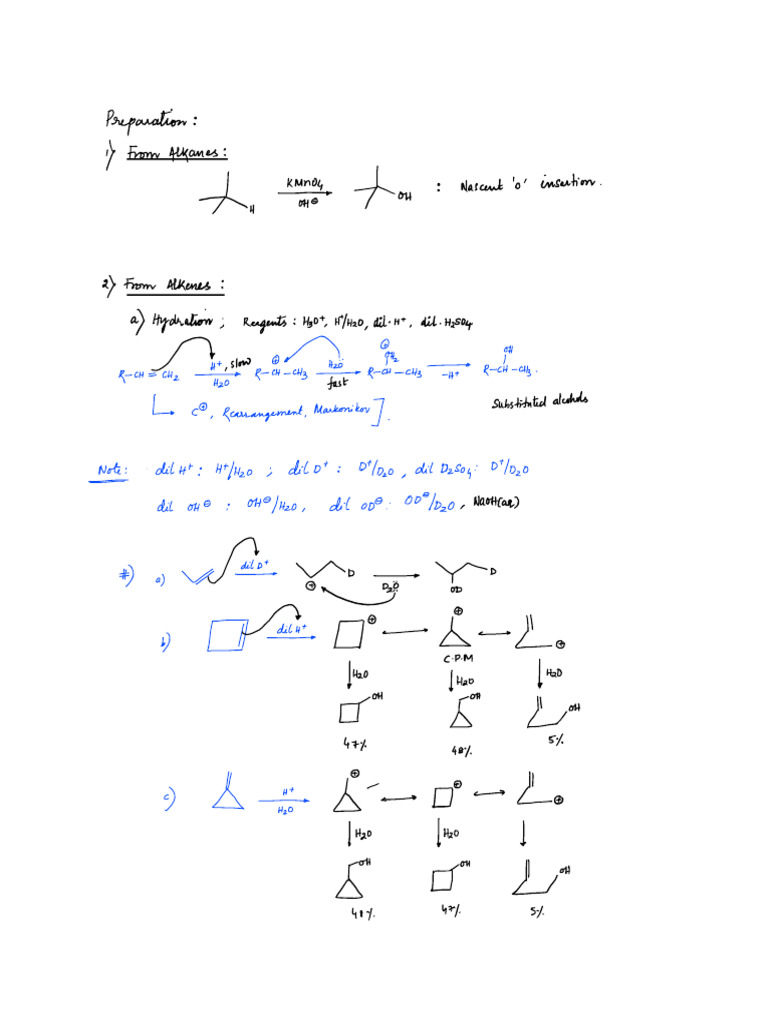 Preparation :
1) From Alkanes :
H KMnO4 OH⊖ OH : Nascent 'o' insertion.
2) From Alkenes :
a) Hydration ; Reagents : H3O+, H+/H2O, dil·H+, dil·H2SO4
R–CH=CH2 H+, slow H2O R–CH–CH3 ⊕ H2O fast R–CH–CH3 ⊕ OH2 –H+ R–CH–CH3. OH
C⊕, Rearrangement, Markonikov ].
Substituted alcohols
Note: dil H+ : H+/H2O ; dil D+ : D+/D2O , dil D2SO4: D+/D2O
dil OH⊖ : OH⊖/H2O, dil OD⊖: OD⊖/D2O, NaOH(aq)
#) a) dil D+ ⊕ D D2O OD D
b) dil H+ ⊕ ⊕ ⊕
C·P·M
H2O H2O H2O
OH OH OH
47% 48% 5%
c) H+ H2O ⊕ ⊕ ⊕
H2O H2O
OH OH OH
48% 47% 5%